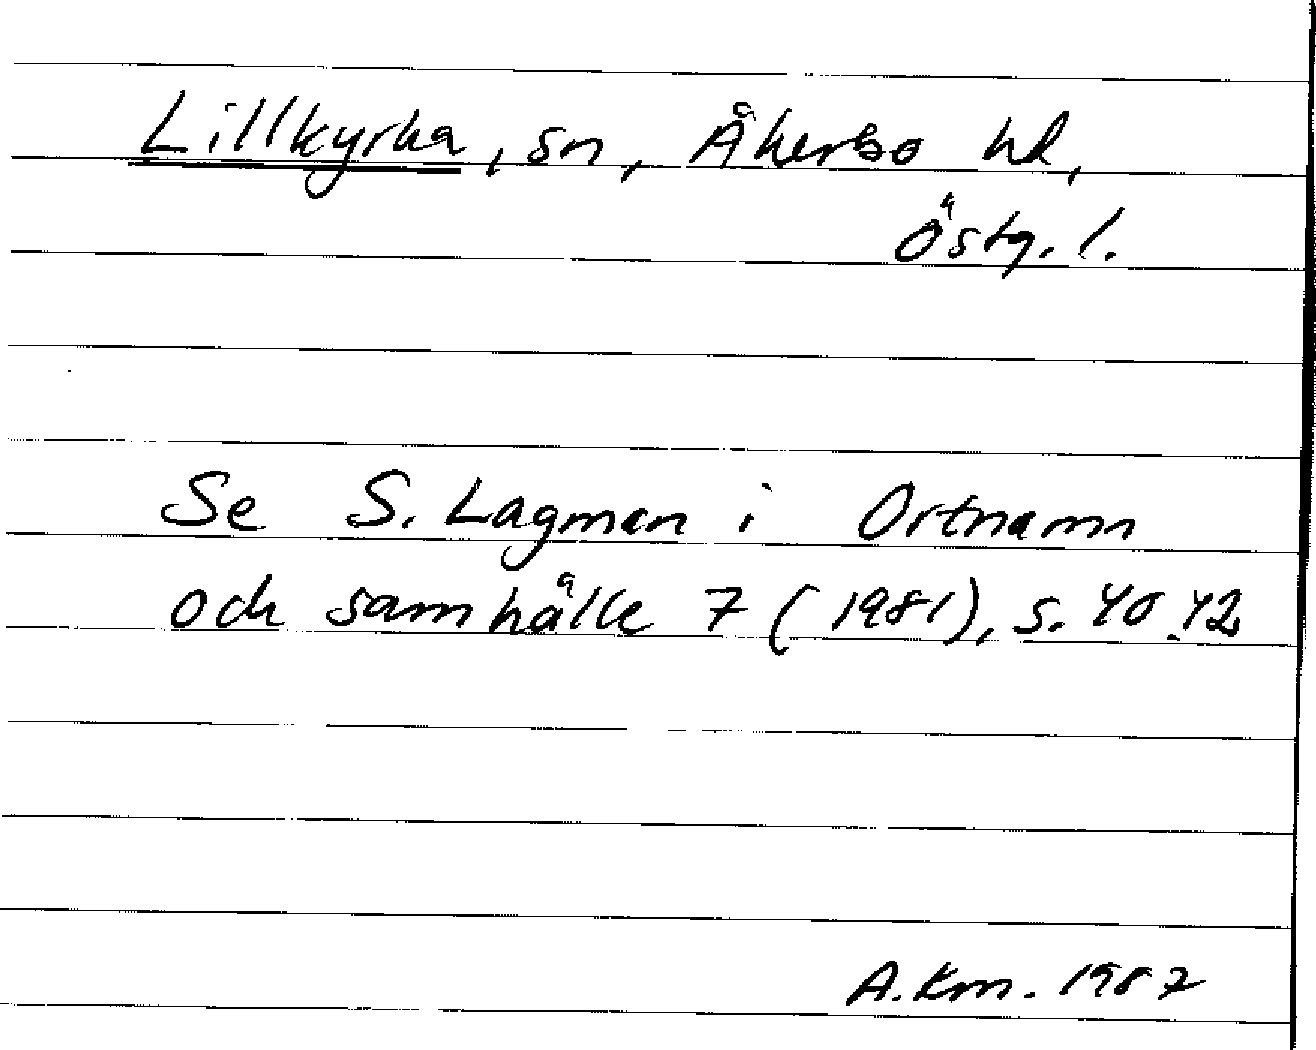 Lillkyrka, sn, Åkerbo hd,
Östg. l.
Se S. Lagman i Ortnamn
och samhälle 7 (1981), s. 40.42
A.Km. 1987